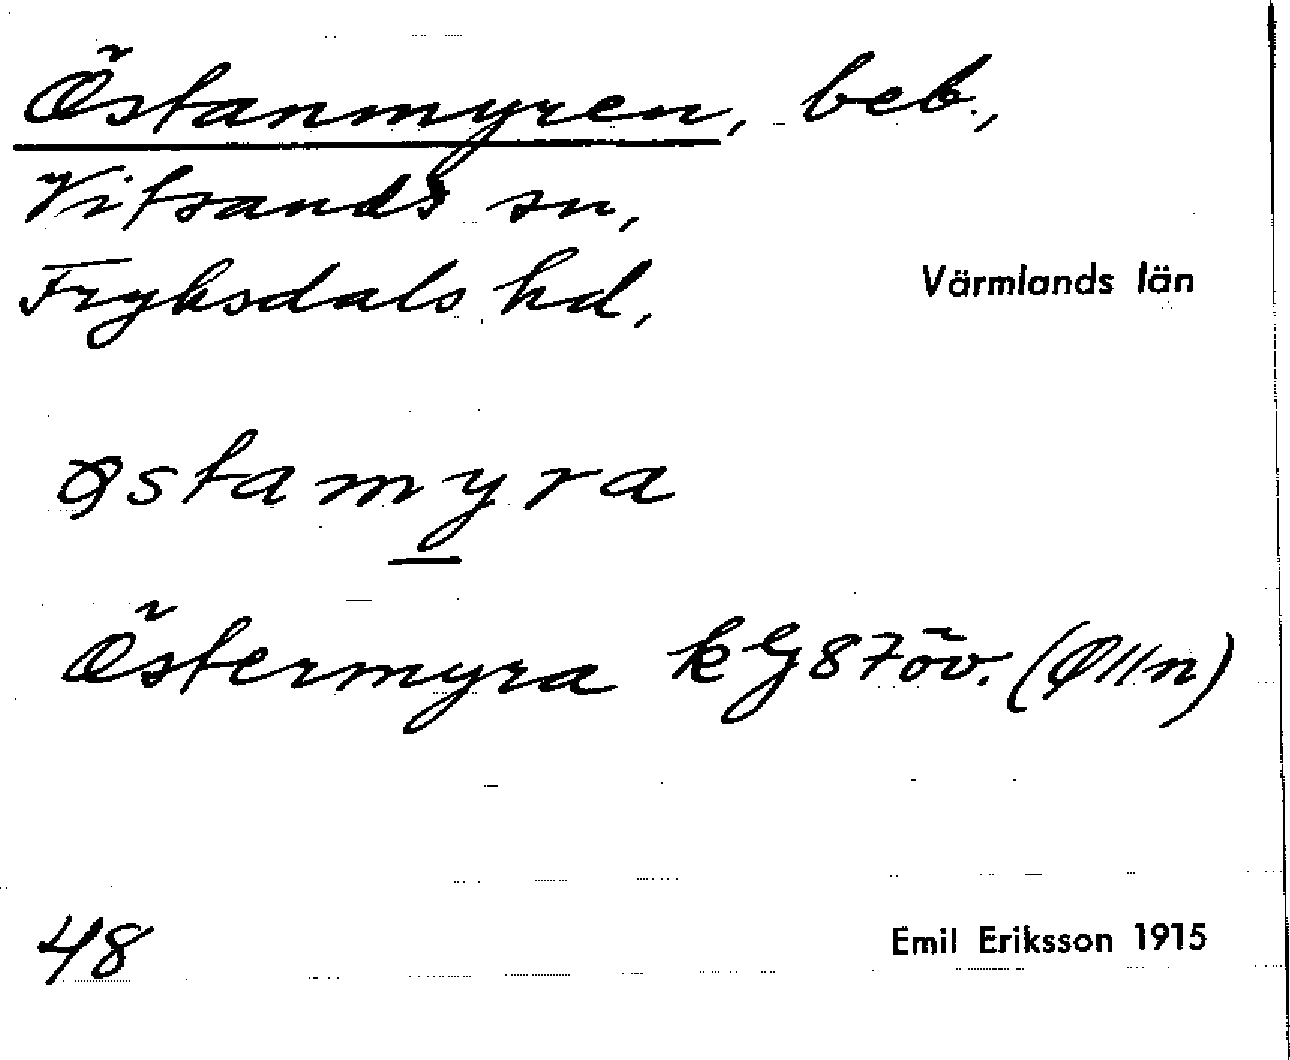 Östanmyren, beb.,
Vitsands sn,
Fryksdals hd,
Värmlands län
østamyra
Östermyra kG87öv. (Ølln)
48
Emil Eriksson 1915